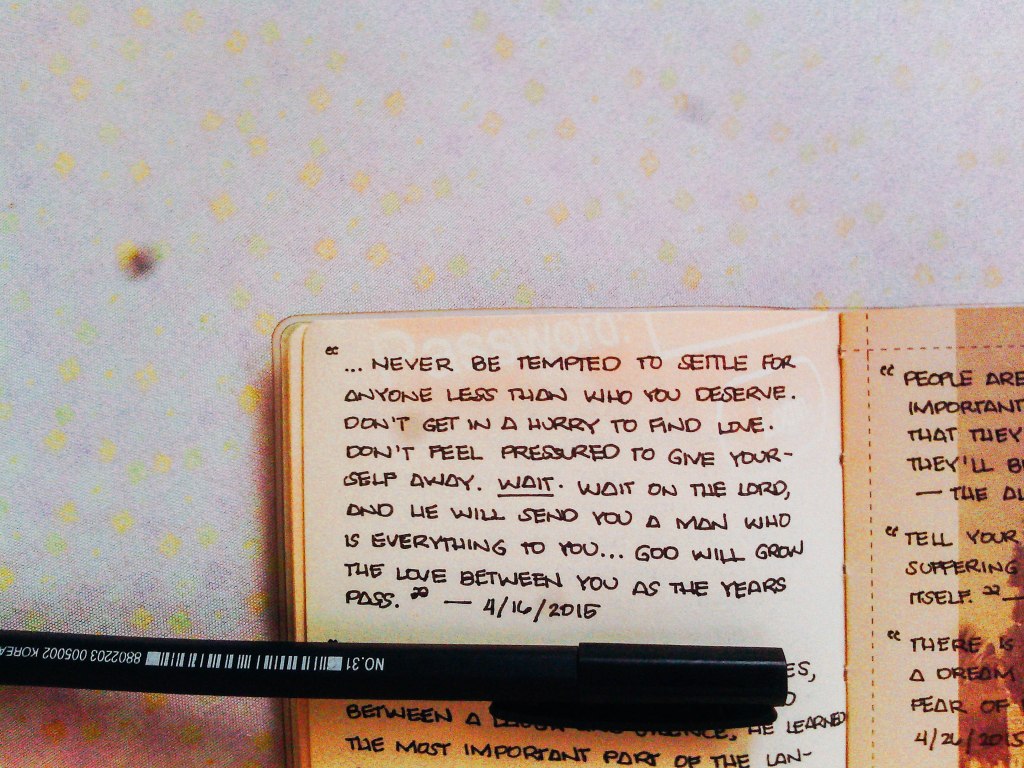 “ ... NEVER BE TEMPTED TO SETTLE FOR
ANYONE LESS THAN WHO YOU DESERVE.
DON'T GET IN A HURRY TO FIND LOVE.
DON'T FEEL PRESSURED TO GIVE YOUR-
SELF AWAY. WAIT. WAIT ON THE LORD,
AND HE WILL SEND YOU A MAN WHO
IS EVERYTHING TO YOU... GOD WILL GROW
THE LOVE BETWEEN YOU AS THE YEARS
PASS. ” — 4/16/2015
BETWEEN A HE LEARNED
THE MOST IMPORTANT PART OF THE LAN-
“ PEOPLE ARE
IMPORTANT
THAT THEY
THEY'LL
— THE
“ TELL YOUR
SUFFERING
ITSELF. ” —
“ THERE IS
A DREAM
FEAR OF
4/26/2015
NO.31
8802203 005002 KOREA